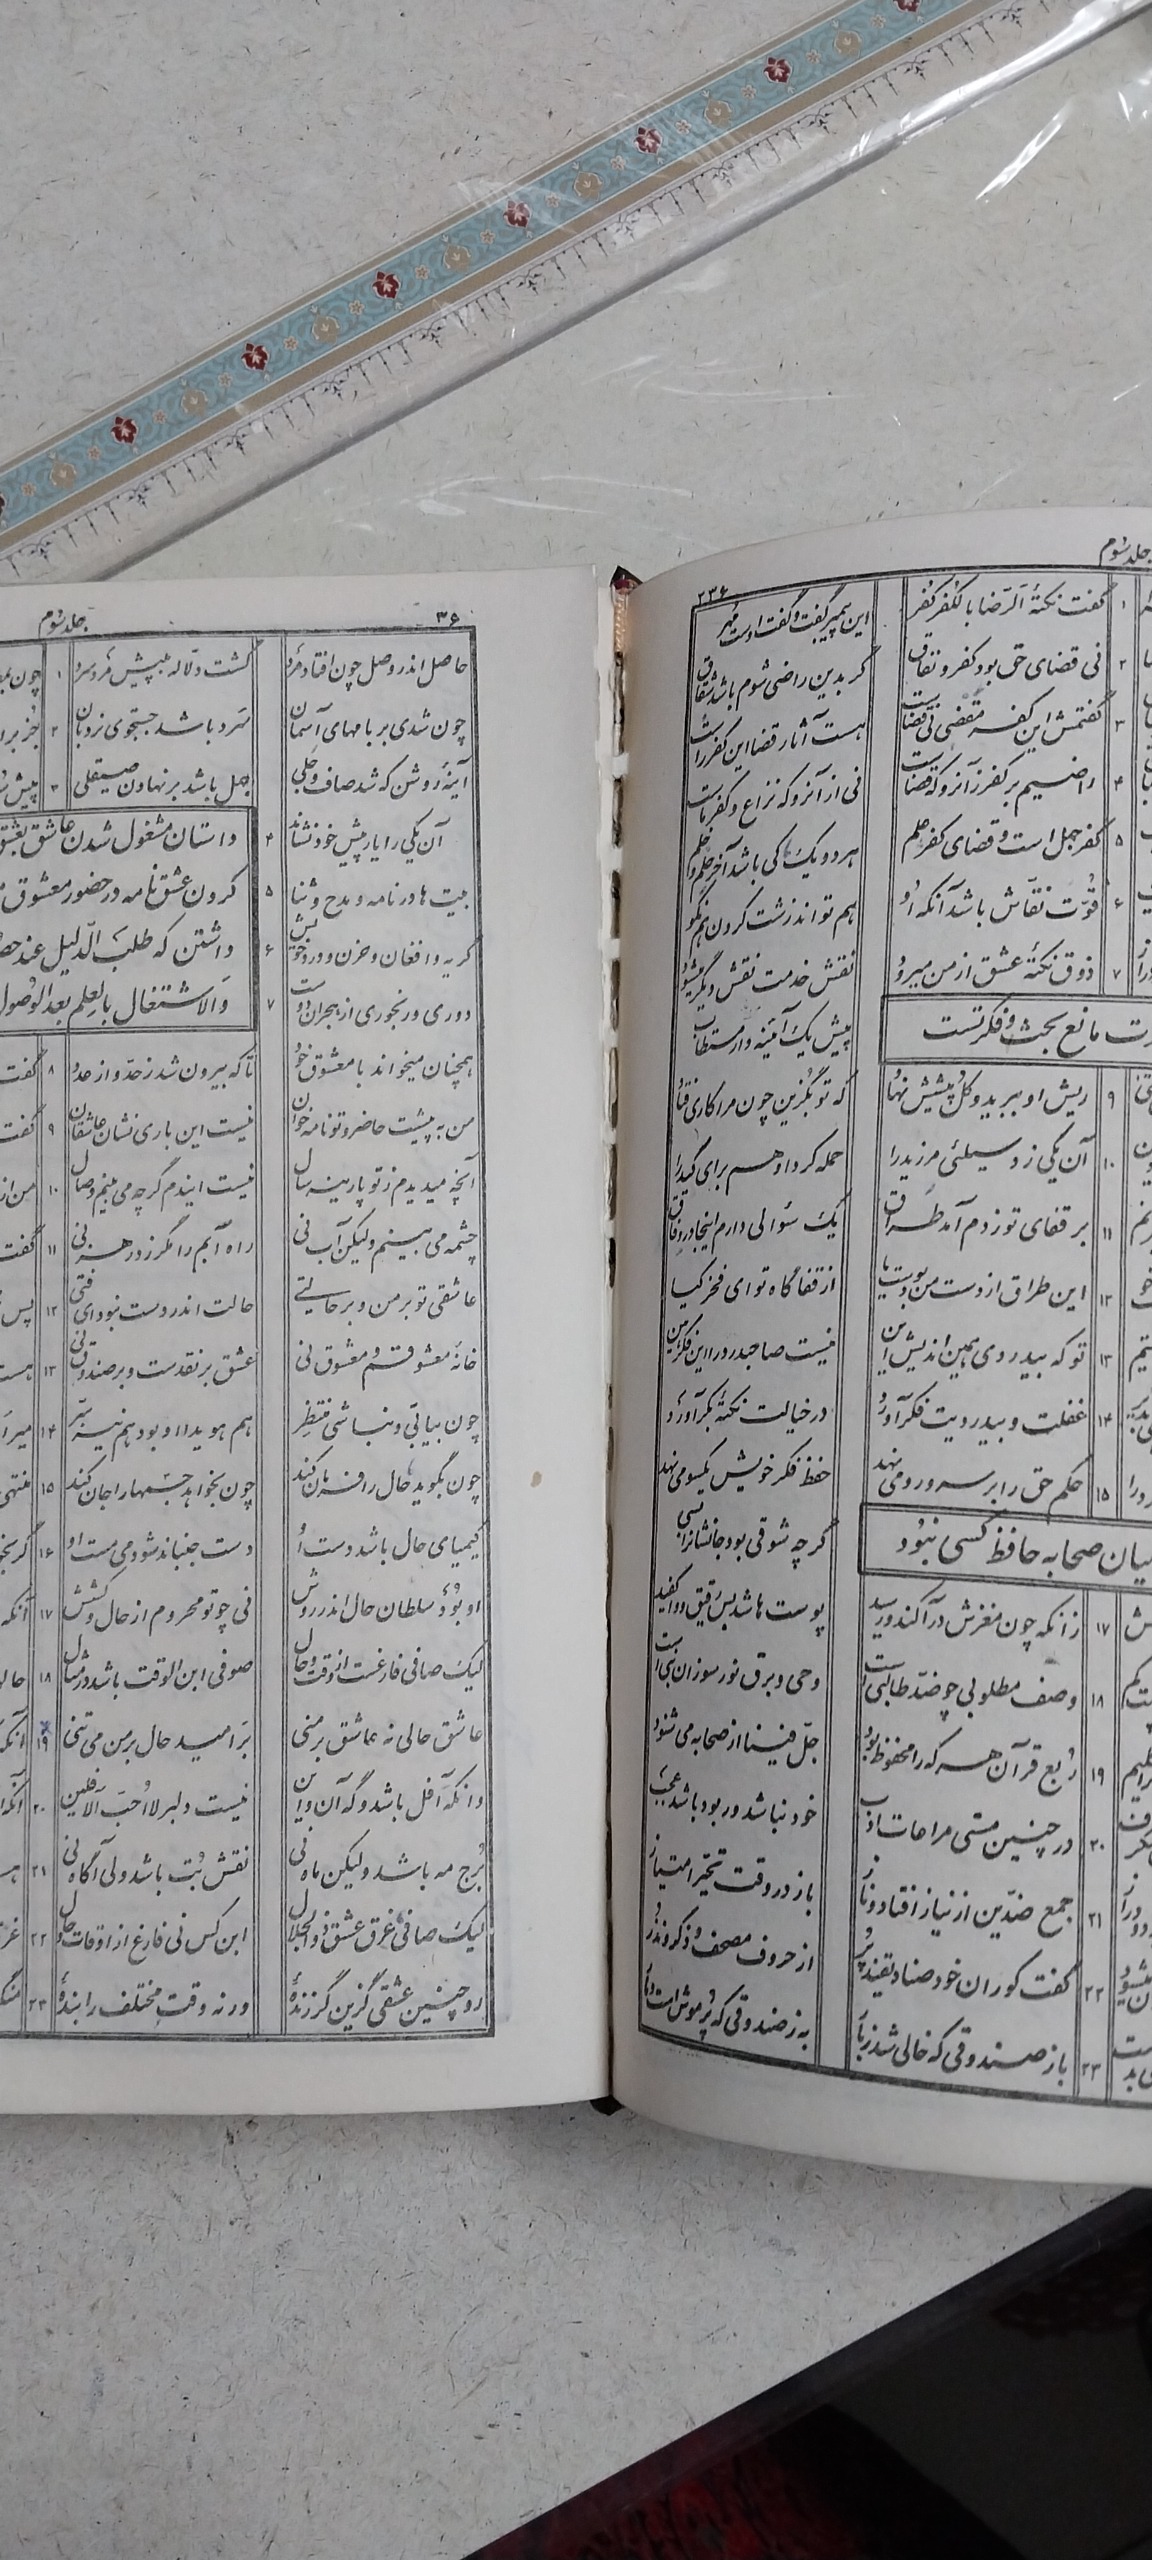 جلد سوم
۲۳۶
گفت نکتهٔ الرضا بالکفر کفر
این پیمبر گفت و گفت اوست مهر
۱
نی قضای حق بود کفر و نفاق
گر بدین راضی شوم باشد شقاق
۲
گفتمش این کفر مقضی نی قضاست
هست آثار قضا این کفر راست
۳
راضیم بر کفر زآنرو که قضاست
نی از آنرو که نزاع و کفر ماست
۴
کفر جهل است و قضای کفر علم
هر دو یک کی باشد آخر حلم و خلم
۵
قوّت نقّاش باشد آنکه او
هم تواند زشت کردن هم نکو
۶
ذوق نکتهٔ عشق از من میرود
نقش خدمت نقش دیگر میشود
۷
مانع بحث و فکرتست
پیش یک آئینه دار مستطاب
ریش او ببرید و کل پیشش نهاد
که تو بگزین چون مرا کاری فتاد
۹
آن یکی زد سیلئی مر زید را
حمله کرد او هم برای کید را
۱۰
بر قفای تو زدم آمد طراق
یک سؤالی دارم اینجا در وفاق
۱۱
این طراق از دست من بودست یا
از قفاگاه تو ای فخر کیا
۱۲
تو که بیدردی همین اندیش این
نیست صاحبدرد را این فکر هین
۱۳
غفلت و بیدردیت فکر آورد
در خیالت نکتهٔ بکر آورد
۱۴
حکم حق را بر سر و رو می نهد
حفظ فکر خویش یکسو می نهد
۱۵
صحابه حافظ کسی نبود
گر چه شوقی بود جانشانرا بسی
زانکه چون مغزش در آکند و رسید
پوست ها شد بس رقیق و واکفید
۱۷
وصف مطلوبی چو ضدّ طالبی است
وحی و برق نور سوزان نبی است
۱۸
ربع قرآن هر که را محفوظ بود
جلّ فینا از صحابه می شنود
۱۹
در چنین مستی مراعات ادب
خود نباشد ور بود باشد عجب
۲۰
جمع ضدّین از نیاز افتاد و ناز
باز در وقت تحیّر امتیاز
۲۱
گفت کوران خود صنادیقند پر
از حروف مصحف و ذکر و نذر
۲۲
باز صندوقی که خالی شد ز بار
به ز صندوقی که پر موش است و مار
۲۳
جلد سوم
حاصل اندر وصل چون افتاد مرد
گشت دلّاله به پیش مرد سرد
۱
چون شدی بر بامهای آسمان
سرد باشد جستجوی نردبان
۲
آینهٔ روشن که شد صاف و جلی
جهل باشد بر نهادن صیقلی
۳
آن یکی را یار پیش خود نشاند
داستان مشغول شدن عاشق بعشق
۴
بیت ها در نامه و مدح و ثنا
کردن عشق نامه در حضور معشوق
۵
گریه و افغان و حزن و درد خویش
داشتن که طلب الدّلیل عند
۶
دوری و رنجوری از هجران دوست
والاشتغال بالعلم بعد الوصول
۷
همچنان میخواند با معشوق خود
تا که بیرون شد ز حدّ و از عدد
۸
گفت
من به پیشت حاضر و تو نامه خوان
نیست این باری نشان عاشقان
۹
گفت
آنچه میدیدم ز تو پارینه سال
نیست ایندم گرچه می بینم وصال
۱۰
چشمه می بینم ولیکن آب نی
راه آبم را مگر زد رهزنی
۱۱
گفت
عاشقی تو بر من و بر حالتی
حالت اندر دست نبود ای فتی
۱۲
پس
خانهٔ معشوقم و معشوق نی
عشق بر نقدست و بر صندوق نی
۱۳
هست
چون بیابی و نباشی منتظر
هم هویدا او بود هم نیز سر
۱۴
چون بگوید حال را فرمان کند
چون بخواهد جسمها را جان کند
۱۵
کیمیای حال باشد دست او
دست جنباند شود می مست او
۱۶
او بود سلطان حال اندر روش
نی چو تو محروم از حال و کشش
۱۷
آنکه
لیک صافی فارغست از وقت و حال
صوفی ابن الوقت باشد در مثال
۱۸
عاشق حالی نه عاشق بر منی
بر امید حال بر من می تنی
۱۹
آنکه
وانکه آفل باشد و گه آن و این
نیست دلبر لا احب الآفلین
۲۰
آنکه
برج مه باشد ولیکن ماه نی
نقش بت باشد ولی آگاه نی
۲۱
لیک صافی غرق عشق ذوالجلال
ابن کس نی فارغ از اوقات و حال
۲۲
رو چنین عشقی گزین گر زندهٔ
ور نه وقت مختلف را بندهٔ
۲۳